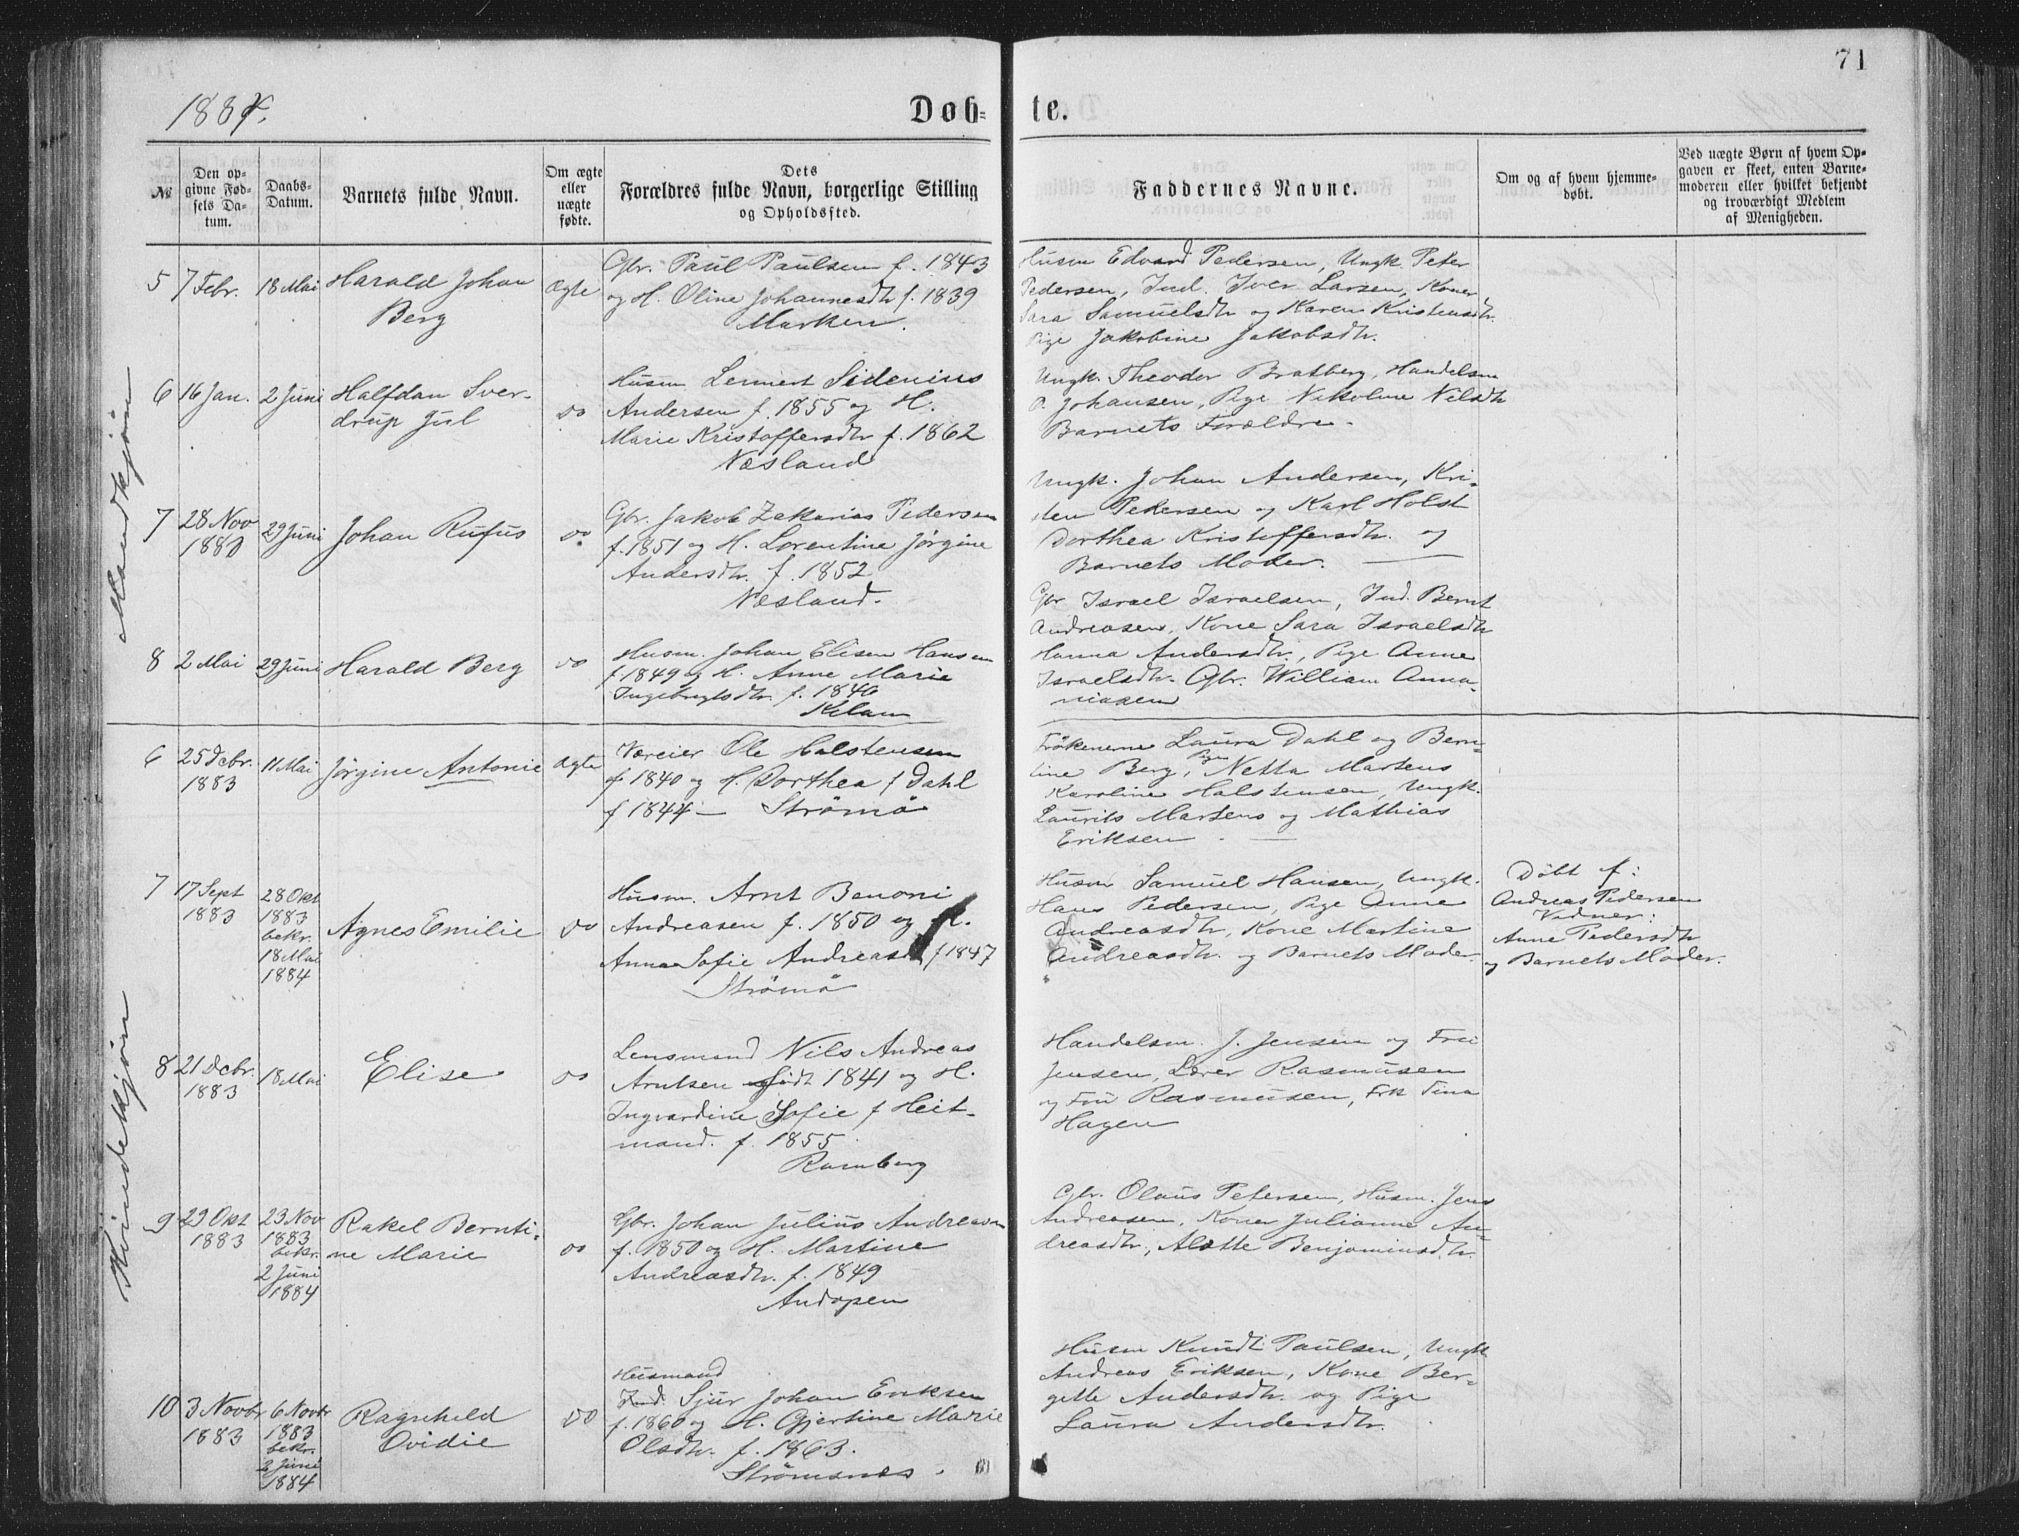 71
1884.
Døb-
te.
№
Den op-
givne Fød-
sels Da-
tum.
Daabs-
Datum.
Barnets fulde Navn.
Om ægte
eller
uægte
fødte.
Dets
Forældres fulde Navn, borgerlige Stilling
og Opholdssted.
Faddernes Navne.
Om og af hvem hjemme-
døbt.
Ved uægte Børn af hvem Op-
gaven er skeet, enten Barne-
moderen eller hvilket bekjendt
og troværdigt Medlem
af Menigheden.
Mandkjøn
5
7 Febr.
18 Mai
Harald Johan
Berg
Ægte
Gbr. Paul Paulsen f. 1843
og H. Oline Johannesdtr f. 1839
Marken.
Husm Edvard Pedersen, Ungk. Peter
Pedersen, Ind. Iver Larsen, Koner
Sara Samuelsdtr og Karen Kristensdtr.
Pige Jakobine Jakobsdtr.
6
16 Jan.
2 Juni
Halfdan Sver-
drup Jul
do
Husm Lennert Sidenius
Andersen f. 1855 og H.
Marie Kristoffersdtr f. 1862
Næsland
Ungk. Theodor Bratberg, Handelsm
P. Johansen, Pige Nikoline Nilsdtr
Barnets Forældre.
7
28 Nov
1880
29 Juni
Johan Rufus
do
Gbr. Jakob Zakarias Pedersen
f. 1851 og H. Lorentine Jørgine
Andersdtr. f. 1852
Næsland.
Ungk. Johan Andersen, Kri-
sten Pedersen og Karl Holst
Dorthea Kristoffersdtr. og
Barnets Moder.
8
2 Mai
29 Juni
Harald Berg
do
Husm. Johan Elisen Hansen
f. 1849 og H. Anne Marie
Ingebrigtsdtr. f. 1846
Kilan
Gbr Israel Israelsen, Ind. Bernt
Andreasen, Kone Sara Israelsdtr
Hanna Andersdtr, Pige Anne
Israelsdtr. Gbr. William Anna-
niasen
Kvindekjøn
6
25 Debr.
1883
11 Mai
Jørgine Antonie
ægte
Væreier Ole Halstensen
f 1840 og H. Dorthea f Dahl
f 1844 — Strømø
Frøkenerne Laura Dahl og Bern-
tine Berg, Piger Netta Martens
Karoline Halstensen, Ungk.
Laurits Martens og Mathias
Eriksen
7
17 Sept
1883
28 Okt
1883
bekr.
18 Mai
1884
Agnes Emilie
do
Husm. Arnt Benoni
Andreasen f. 1850 og H.
Anna Sofie Andreasdtr f 1847
Strømø
Husm Samuel Hansen, Ungk.
Hans Pedersen, Pige Anne
Andreasdtr, Kone Martine
Andreasdtr. og Barnets Moder.
Døbt f:
Andreas Pedersen
Vidner:
Anne Pedersdtr
og Barnets Moder.
8
21 Debr.
1883
18 Mai
Elise
do
Lensmand Nils Andreas
Arntsen født 1841 og H.
Ingvardine Sofie f Heit-
mand. f. 1855.
Ramberg
Handelsm. J. Jensen og Fru
Jensen, Lærer Rasmusen
og Fru Rasmusen, Frk Tina
Hagen
9
29 Okt
1883
23 Nov
1883
bekr.
2 Juni
1884
Rakel Bernti-
ne Marie
do
Gbr. Johan Julius Andreasen
f. 1850 og H. Martine
Andreasdtr. f. 1849
Andopen
Gbr. Olaus Petersen, Husm. Jens
Andreasen, Koner Julianne An-
dreasdtr, Alette Benjaminsdtr.
10
3 Novbr
1883
6 Novbr
1883
bekr.
2 Juni
1884
Ragnhild
Ovidie
do
Husmand
Ind. Sjur Johan Eriksen
f. 1860 og H. Gjertine Marie
Olsdtr. f. 1863.
Strømsnæs.
Husm Knudt Paulsen, Ungk
Andreas Eriksen, Kone Ber-
gitte Andersdtr. og Pige
Laura Andersdtr.